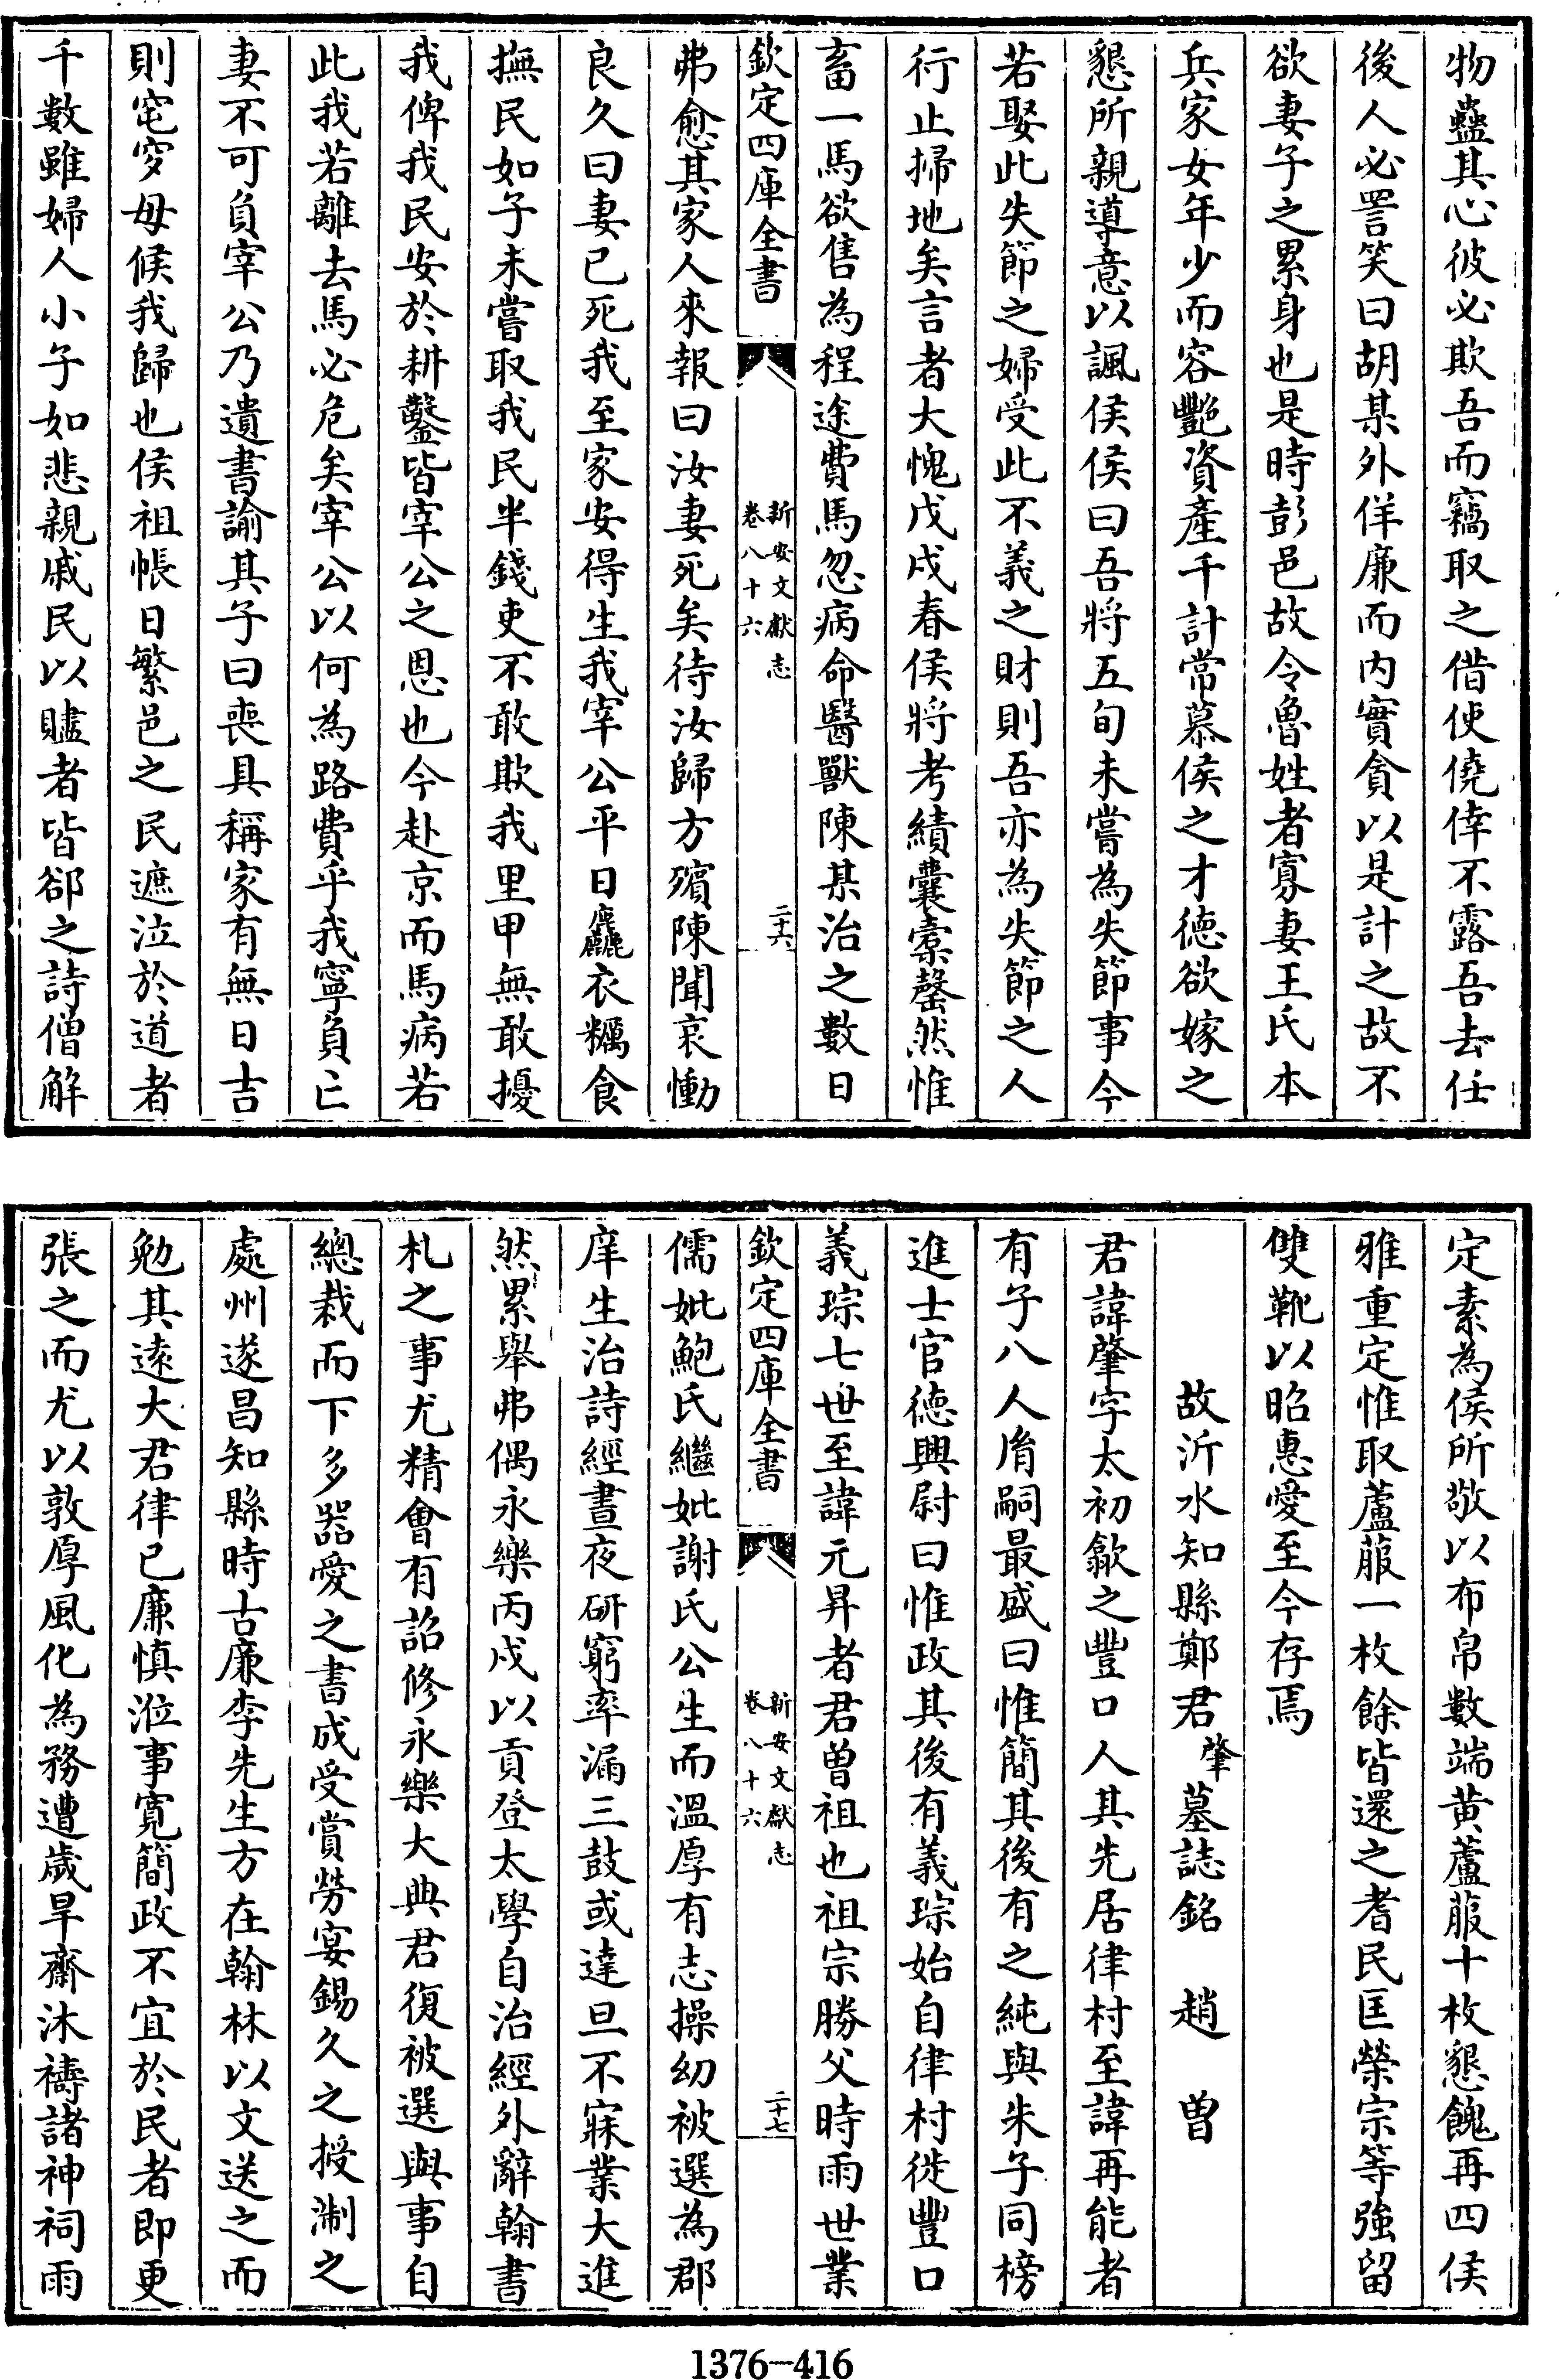 物蠱其心彼必欺吾而竊取之借使僥倖不露吾去任
後人必詈笑曰胡某外佯廉而内實貪以是計之故不
欲妻子之累身也是時彭邑故令魯姓者寡妻王氏本
兵家女年少而容艶資產千計常慕侯之才德欲嫁之
懇所親導意以諷侯侯曰吾將五旬未嘗為失節事今
若娶此失節之婦受此不義之財則吾亦為失節之人
行止掃地矣言者大愧戊戌春侯將考績囊橐罄然惟
畜一馬欲售為程途費馬忽病命醫獸陳某治之數日
欽定四庫全書
新安文獻志
卷八十六
二十六
弗愈其家人來報曰汝妻死矣待汝歸方殯陳聞哀慟
良久曰妻已死我至家安得生我宰公平日麤衣糲食
撫民如子未嘗取我民半錢吏不敢欺我里甲無敢擾
我俾我民安於耕鑿皆宰公之恩也今赴京而馬病若
此我若離去馬必危矣宰公以何為路費乎我寧負亡
妻不可負宰公乃遺書諭其子曰喪具稱家有無日吉
則窀穸毋候我歸也侯祖帳日繁邑之民遮泣於道者
千數雖婦人小子如悲親戚民以贐者皆郤之詩僧解
定素為侯所敬以布帛數端黄蘆菔十枚懇餽再四侯
雅重定惟取蘆菔一枚餘皆還之耆民匡榮宗等強留
雙靴以昭惠愛至今存焉
故沂水知縣鄭君肇墓誌銘　趙　曽
君諱肇字太初歙之豐口人其先居律村至諱再能者
有子八人胤嗣最盛曰惟簡其後有之純與朱子同榜
進士官德興尉曰惟政其後有義琮始自律村徙豐口
義琮七世至諱元昇者君曽祖也祖宗勝父時雨世業
欽定四庫全書
新安文獻志
卷八十六
二十七
儒妣鮑氏繼妣謝氏公生而溫厚有志操幼被選為郡
庠生治詩經晝夜研窮率漏三鼓或達旦不寐業大進
然累舉弗偶永樂丙戌以貢登太學自治經外辭翰書
札之事尤精會有詔修永樂大典君復被選與事自
總裁而下多器愛之書成受賞勞宴錫久之授淛之
處州遂昌知縣時古廉李先生方在翰林以文送之而
勉其逺大君律已廉慎涖事寛簡政不宜於民者即更
張之而尤以敦厚風化為務遭歲旱齋沐禱諸神祠雨
1376-416